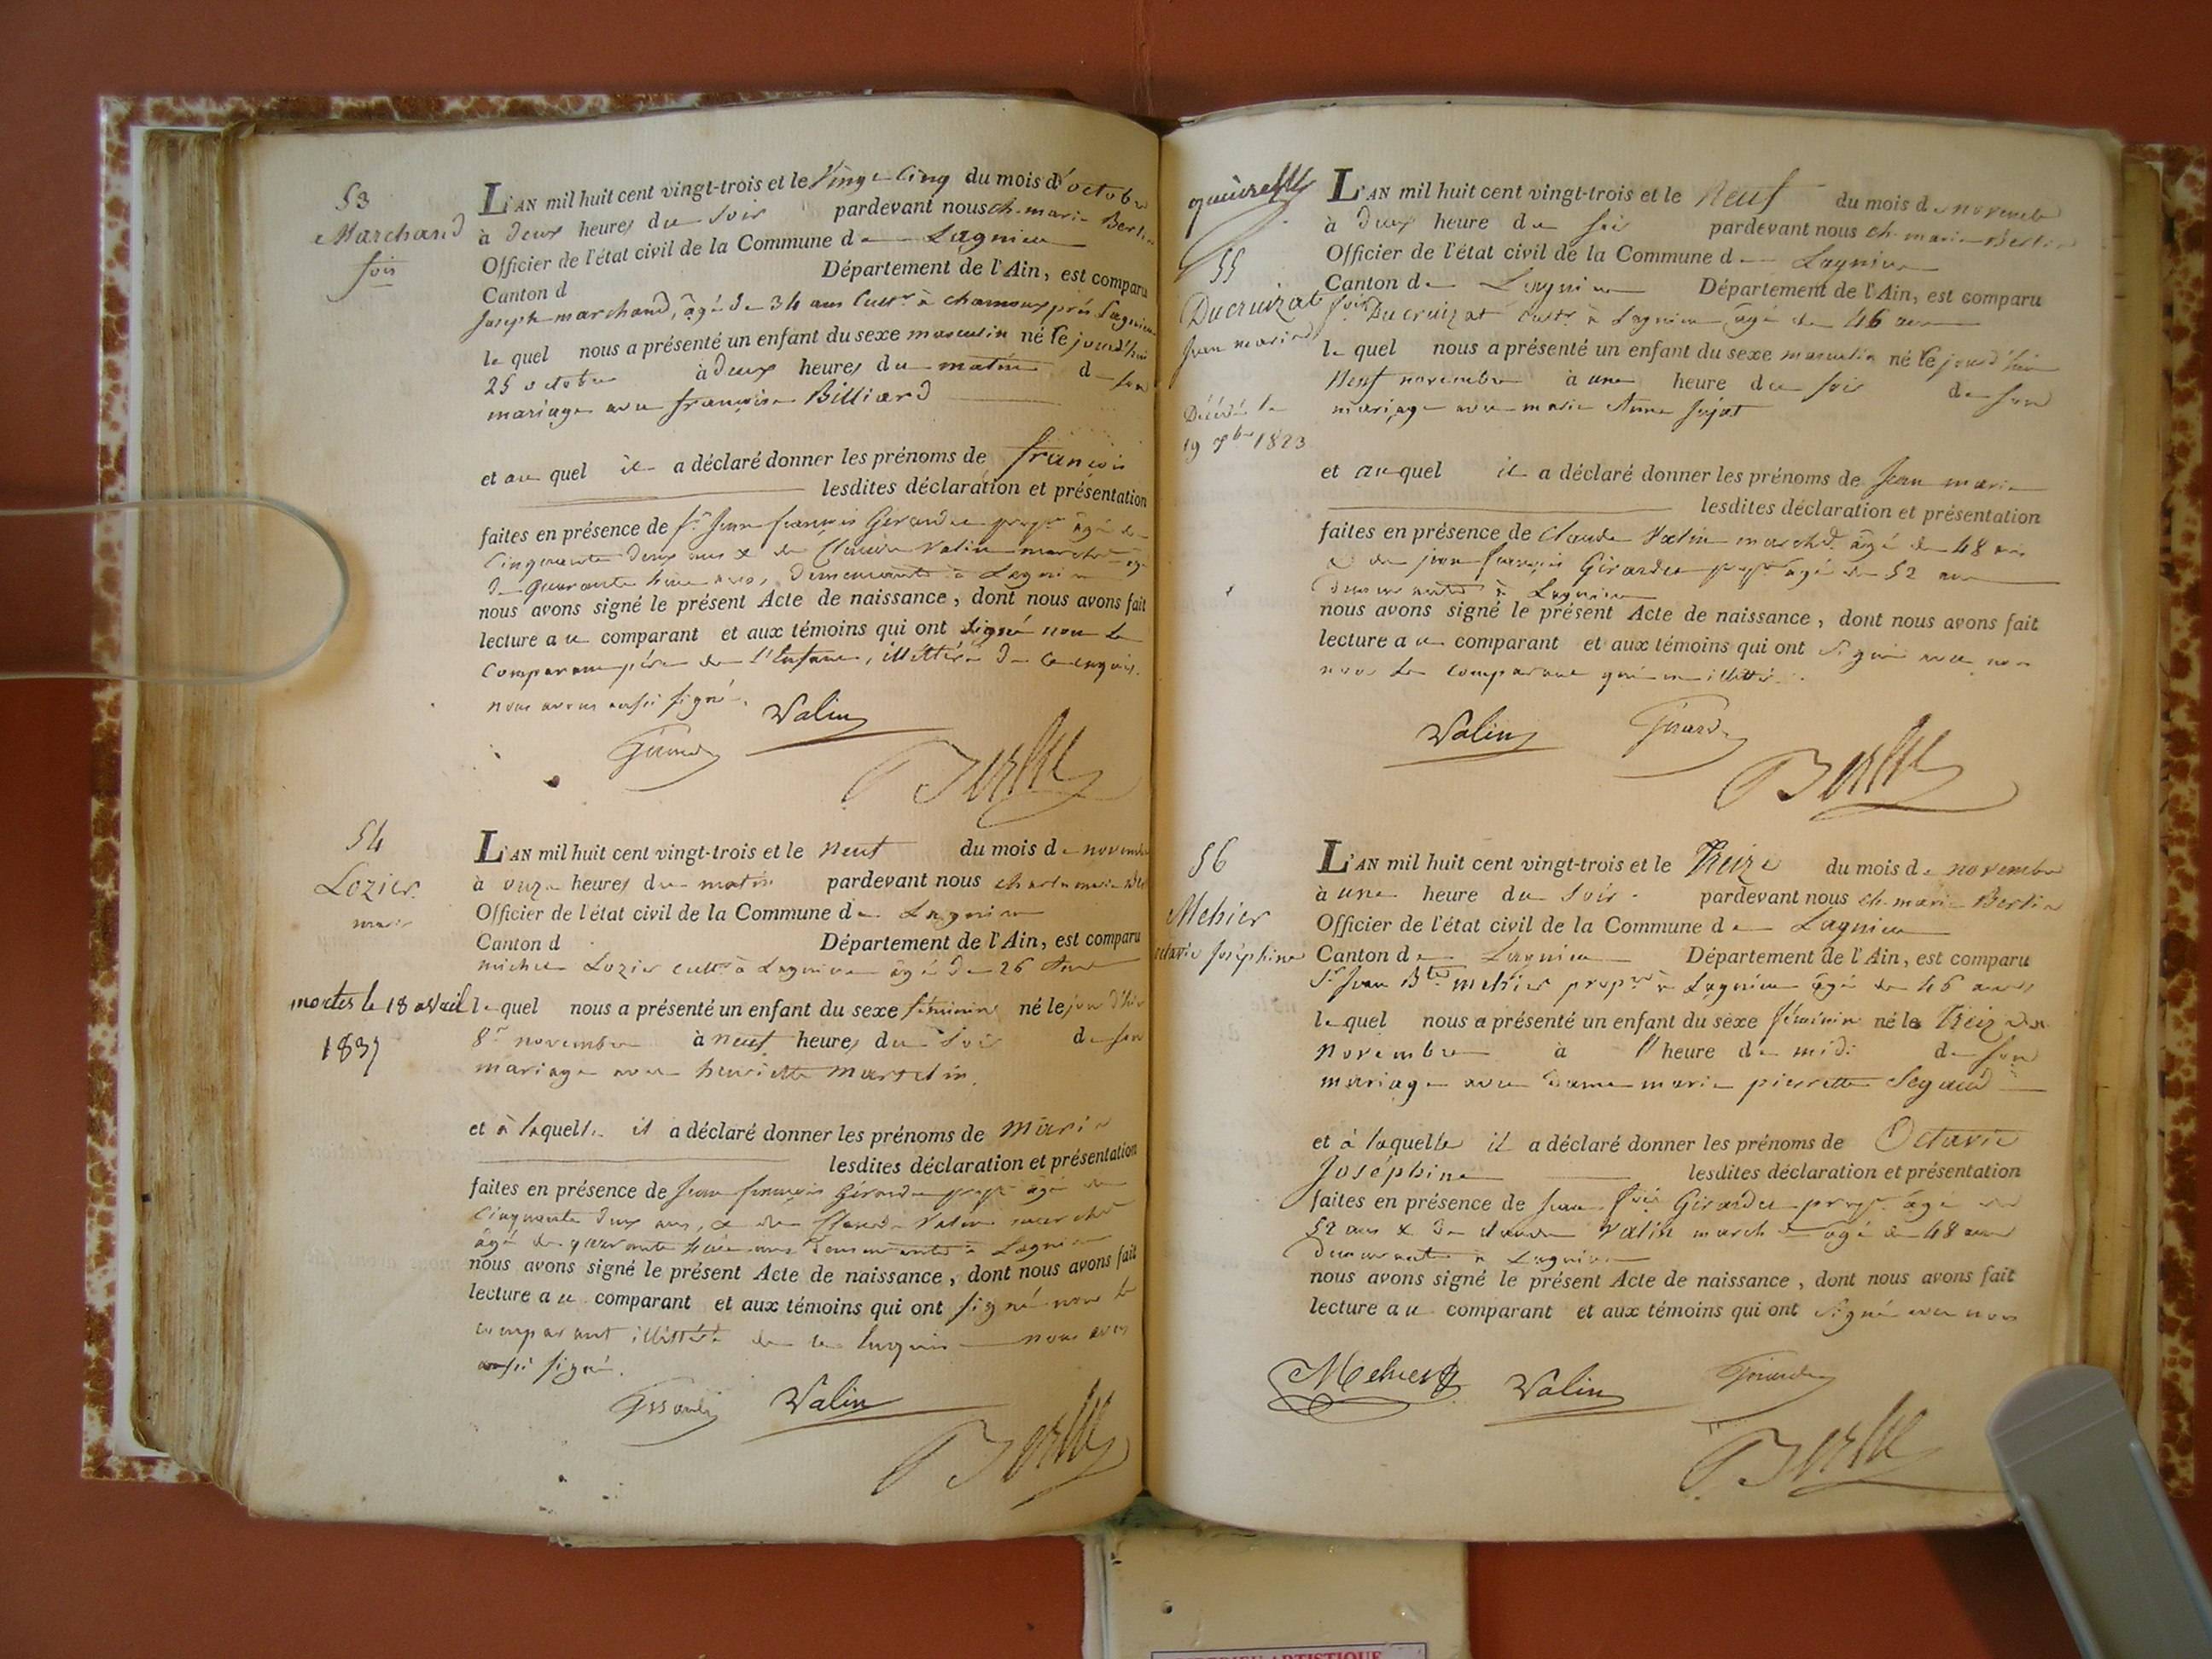 53
Marchand
fois
L'AN mil huit cent vingt-trois et le Vingt Cinq du mois d'octobre
à deux heures du soir pardevant nous ch. marie Berlie
Officier de l'état civil de la Commune de Lagnieu
Canton d Département de l'Ain, est comparu
Joseph marchand, âgé de 34 ans Cultr à chamoux près Lagnieu
le quel nous a présenté un enfant du sexe masculin né le jourd'hui
25 octobre à deux heures du matin de son
mariage avec françoise Billiard
et au quel il a déclaré donner les prénoms de françois
lesdites déclaration et présentation
faites en présence de Sr Jean françois Girardet propre âgé de
Cinquante deux ans & de Claude Valin marchd âgé
de quarante huit ans, demeurants à Lagnieu
nous avons signé le présent Acte de naissance, dont nous avons fait
lecture au comparant et aux témoins qui ont signé non le
comparant père de l'Enfant, illittéré de ce enquis.
nous avons aussi signé.
Valin
54
Lozier
marie
mortes le 18 avril
1837
L'AN mil huit cent vingt-trois et le neuf du mois de novembre
à onze heures du matin pardevant nous charles marie
Officier de l'état civil de la Commune de Lagnieu
Canton d Département de l'Ain, est comparu
michel Lozier cultr à Lagnieu âgé de 26 ans
le quel nous a présenté un enfant du sexe féminin né le jour d'hier
8 novembre à neuf heures du soir de son
mariage avec henriette martelin
et à laquelle il a déclaré donner les prénoms de marie
lesdites déclaration et présentation
faites en présence de Jean françois Girardet propre âgé de
Cinquante deux ans, & de Claude Valin marchd
âgé de quarante huit ans demeurants à Lagnieu
nous avons signé le présent Acte de naissance, dont nous avons fait
lecture au comparant et aux témoins qui ont signé non le
comparant illittéré de ce enquis nous avons
aussi signé.
Valin
55
Ducruizat
Jean marie
Décédé le
19 9bre 1823
L'AN mil huit cent vingt-trois et le Neuf du mois de novembre
à deux heure du soir pardevant nous ch. marie Berlie
Officier de l'état civil de la Commune de Lagnieu
Canton de Lagnieu Département de l'Ain, est comparu
fois Ducruizat cultr à Lagnieu âgé de 46 ans
le quel nous a présenté un enfant du sexe masculin né le jourd'hui
Neuf novembre à une heure du soir de son
mariage avec marie Anne
et auquel il a déclaré donner les prénoms de Jean marie
lesdites déclaration et présentation
faites en présence de Claude Valin marchd âgé de 48 ans
& de jean françois Girardet propre âgé de 52 ans
demeurants à Lagnieu
nous avons signé le présent Acte de naissance, dont nous avons fait
lecture au comparant et aux témoins qui ont signé avec nous
non le comparant illittéré.
Valin
56
Mehier
Octavie Joséphine
L'AN mil huit cent vingt-trois et le Treize du mois de novembre
à une heure du soir pardevant nous ch. marie Berlie
Officier de l'état civil de la Commune de Lagnieu
Canton de Lagnieu Département de l'Ain, est comparu
Sr Jean Bte mehier propre à Lagnieu âgé de 46 ans
le quel nous a présenté un enfant du sexe féminin né le Treize
Novembre à l'heure de midi de son
mariage avec dame marie pierrette Segaud
et à laquelle il a déclaré donner les prénoms de Octavie
Joséphine lesdites déclaration et présentation
faites en présence de Jean fois Girardet propre âgé de
52 ans & de claude Valin marchd âgé de 48 ans
demeurants à Lagnieu
nous avons signé le présent Acte de naissance, dont nous avons fait
lecture au comparant et aux témoins qui ont signé avec nous
Mehier Valin
ARTISTIQUE